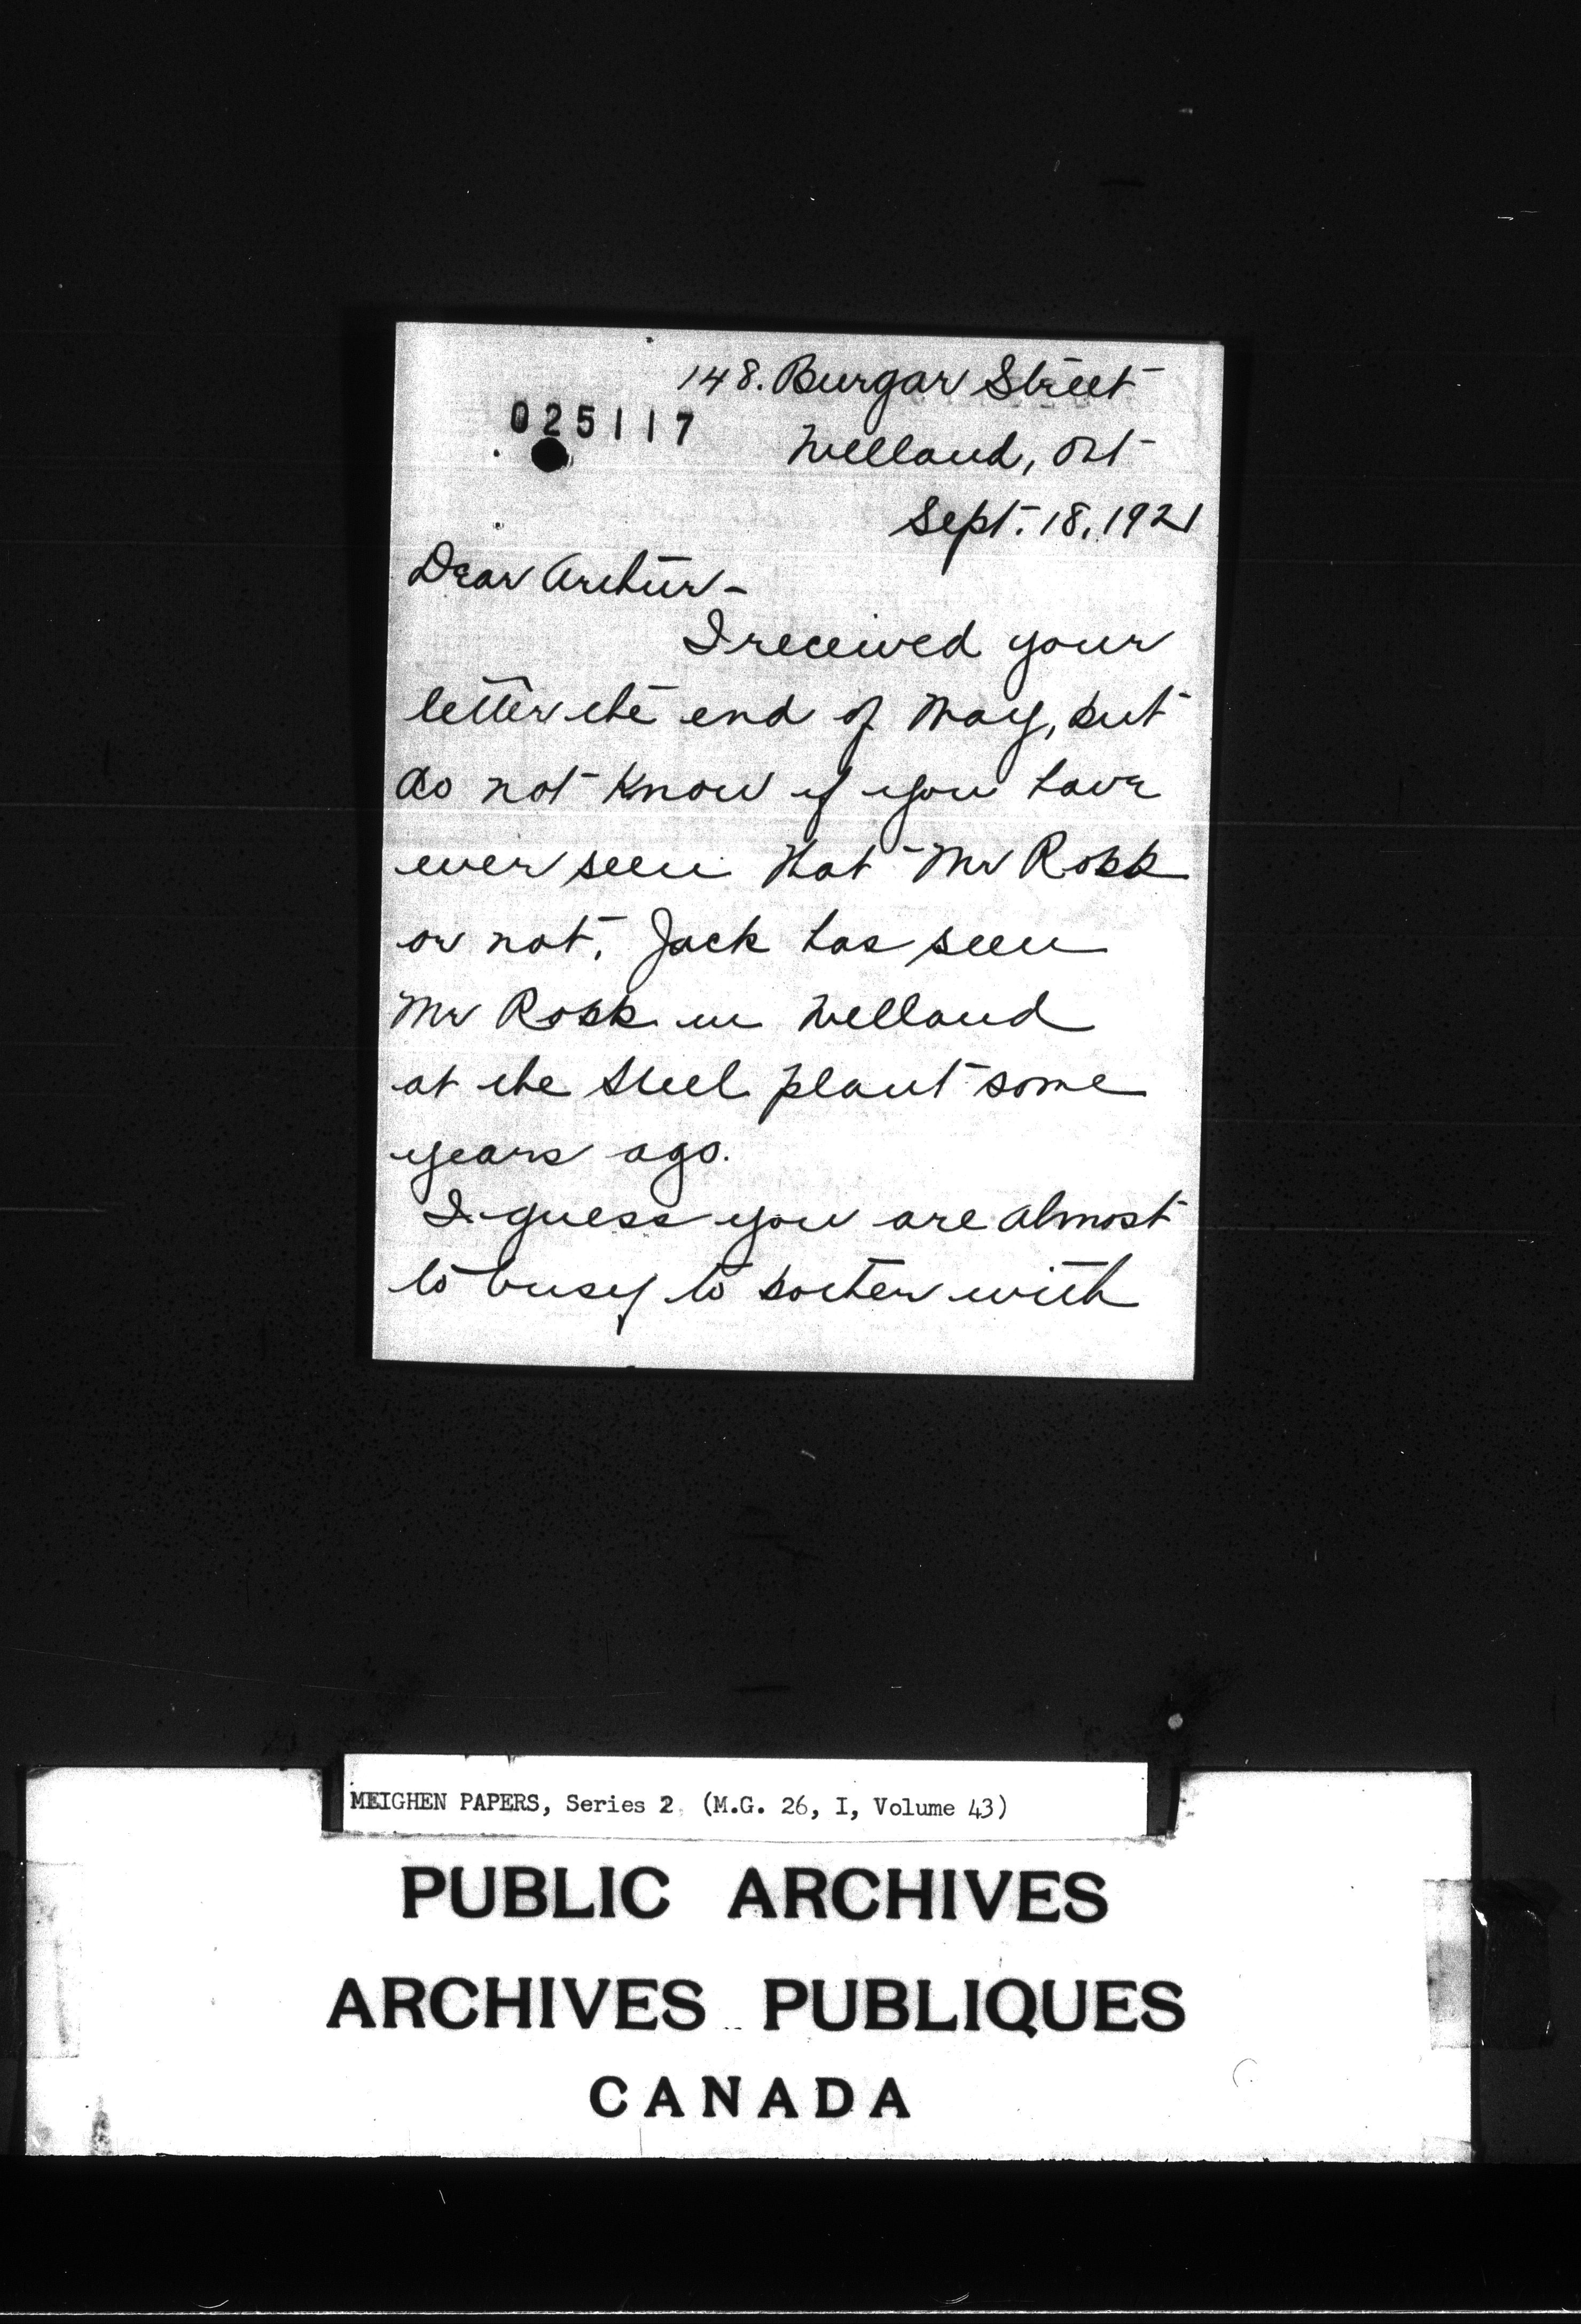 148. Burgar Street
025117
Welland, Ont
Sept. 18, 1921
Dear Arthur -
I received your
letter the end of May, but
do not know if you have
ever seen that Mr Robb
or not. Jack has seen
Mr Robb in Welland
at the Steel plant some
years ago.
I guess you are almost
to busy to bother with
MEIGHEN PAPERS, Series 2 (M.G. 26, I, Volume 43)
PUBLIC ARCHIVES
ARCHIVES PUBLIQUES
CANADA